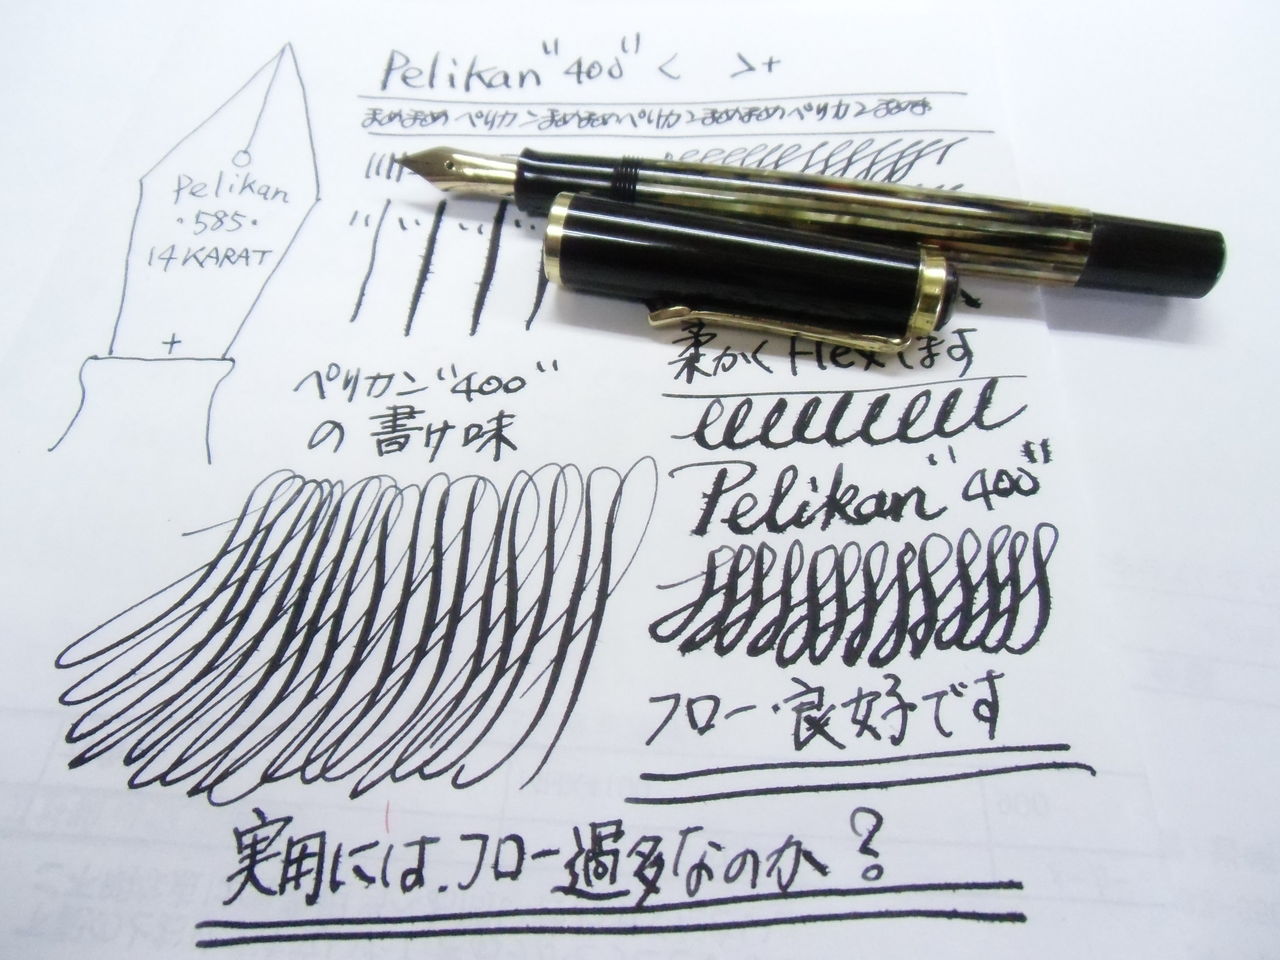 Pelikan "400" < >+
まめまめ ペリカン まめまめ ペリカン まめまめ ペリカン まめま
Pelikan
・585・
14 KARAT
+
柔かく Flexします
ペリカン "400"
の 書け味
Pelikan "400"
フロー・良好です
実用には、フロー過多なのか?